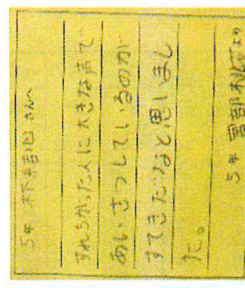 5年 林 さんへ
すれちがった人に大きな声で
あいさつしているのが
すてきだなと思いまし
た。
5年 より